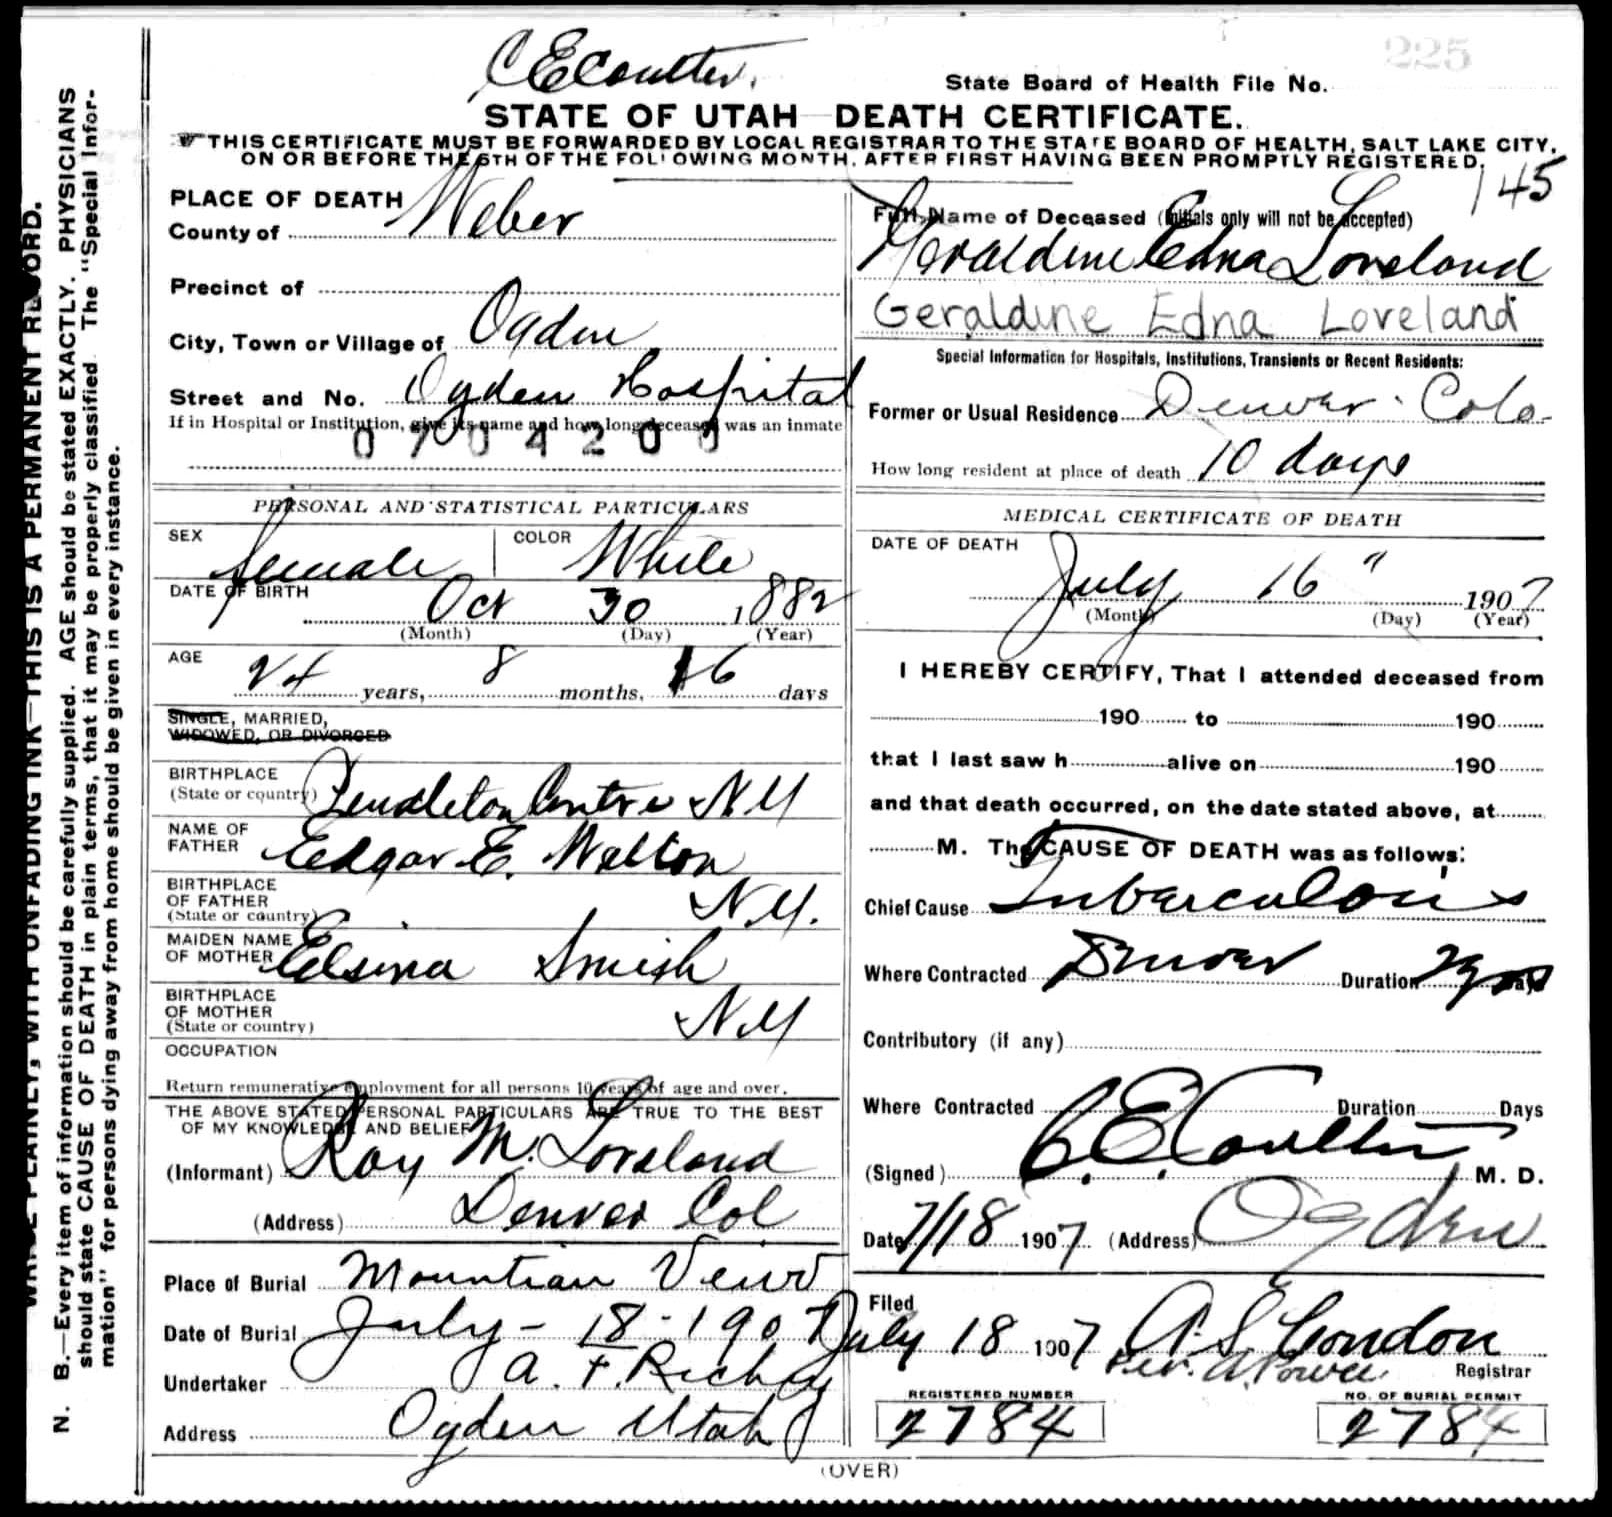 C E Coulter.
225
State Board of Health File No.
STATE OF UTAH DEATH CERTIFICATE.
THIS CERTIFICATE MUST BE FORWARDED BY LOCAL REGISTRAR TO THE STATE BOARD OF HEALTH, SALT LAKE CITY,
ON OR BEFORE THE 5TH OF THE FOLLOWING MONTH, AFTER FIRST HAVING BEEN PROMPTLY REGISTERED.
145
PLACE OF DEATH
County of Weber
Precinct of
City, Town or Village of Ogden
Street and No. Ogden Hospital
If in Hospital or Institution, give its name and how long deceased was an inmate
0704200
PERSONAL AND STATISTICAL PARTICULARS
SEX female COLOR White
DATE OF BIRTH Oct 30 1882
(Month) (Day) (Year)
AGE 24 years, 8 months, 16 days
SINGLE, MARRIED,
WIDOWED, OR DIVORCED
BIRTHPLACE
(State or country) Pendleton Centre N.Y
NAME OF
FATHER Edgar E. Welton
BIRTHPLACE
OF FATHER
(State or country) N.Y.
MAIDEN NAME
OF MOTHER Elsina Smish
BIRTHPLACE
OF MOTHER
(State or country) N.Y
OCCUPATION
Return remunerative employment for all persons 10 years of age and over.
THE ABOVE STATED PERSONAL PARTICULARS ARE TRUE TO THE BEST
OF MY KNOWLEDGE AND BELIEF
(Informant) Roy M. Loveland
(Address) Denver Col
Place of Burial Mountian Veiw
Date of Burial July - 18 - 1907
Undertaker A. F. Richey
Address Ogden Utah
Full Name of Deceased (Initials only will not be accepted)
Geraldine Edna Loveland
Geraldine Edna Loveland
Special Information for Hospitals, Institutions, Transients or Recent Residents:
Former or Usual Residence Denver Colo-
How long resident at place of death 10 days
MEDICAL CERTIFICATE OF DEATH
DATE OF DEATH
July 16" 1907
(Month) (Day) (Year)
I HEREBY CERTIFY, That I attended deceased from
190 to 190
that I last saw h alive on 190
and that death occurred, on the date stated above, at
M. The CAUSE OF DEATH was as follows:
Chief Cause Tuberculosis
Where Contracted Denver Duration 2 yrs Days
Contributory (if any)
Where Contracted Duration Days
(Signed) C. E. Coulter M. D.
Date 7/18 1907 (Address) Ogden
Filed
July 18 1907 A. S. Condon
Per. A. Powell Registrar
REGISTERED NUMBER
2784
NO. OF BURIAL PERMIT
2784
(OVER)
WRITE PLAINLY, WITH UNFADING INK—THIS IS A PERMANENT RECORD.
N. B.—Every item of information should be carefully supplied. AGE should be stated EXACTLY. PHYSICIANS
should state CAUSE OF DEATH in plain terms, that it may be properly classified The "Special Infor-
mation" for persons dying away from home should be given in every instance.